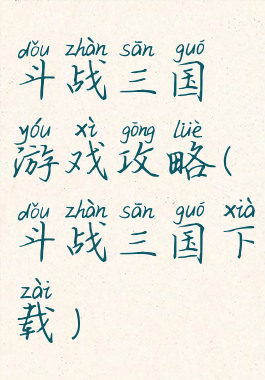 dǒu zhàn sān guó
斗战三国
yóu xì gōng lüè
游戏攻略(
dǒu zhàn sān guó xià
斗战三国下
zài
载)